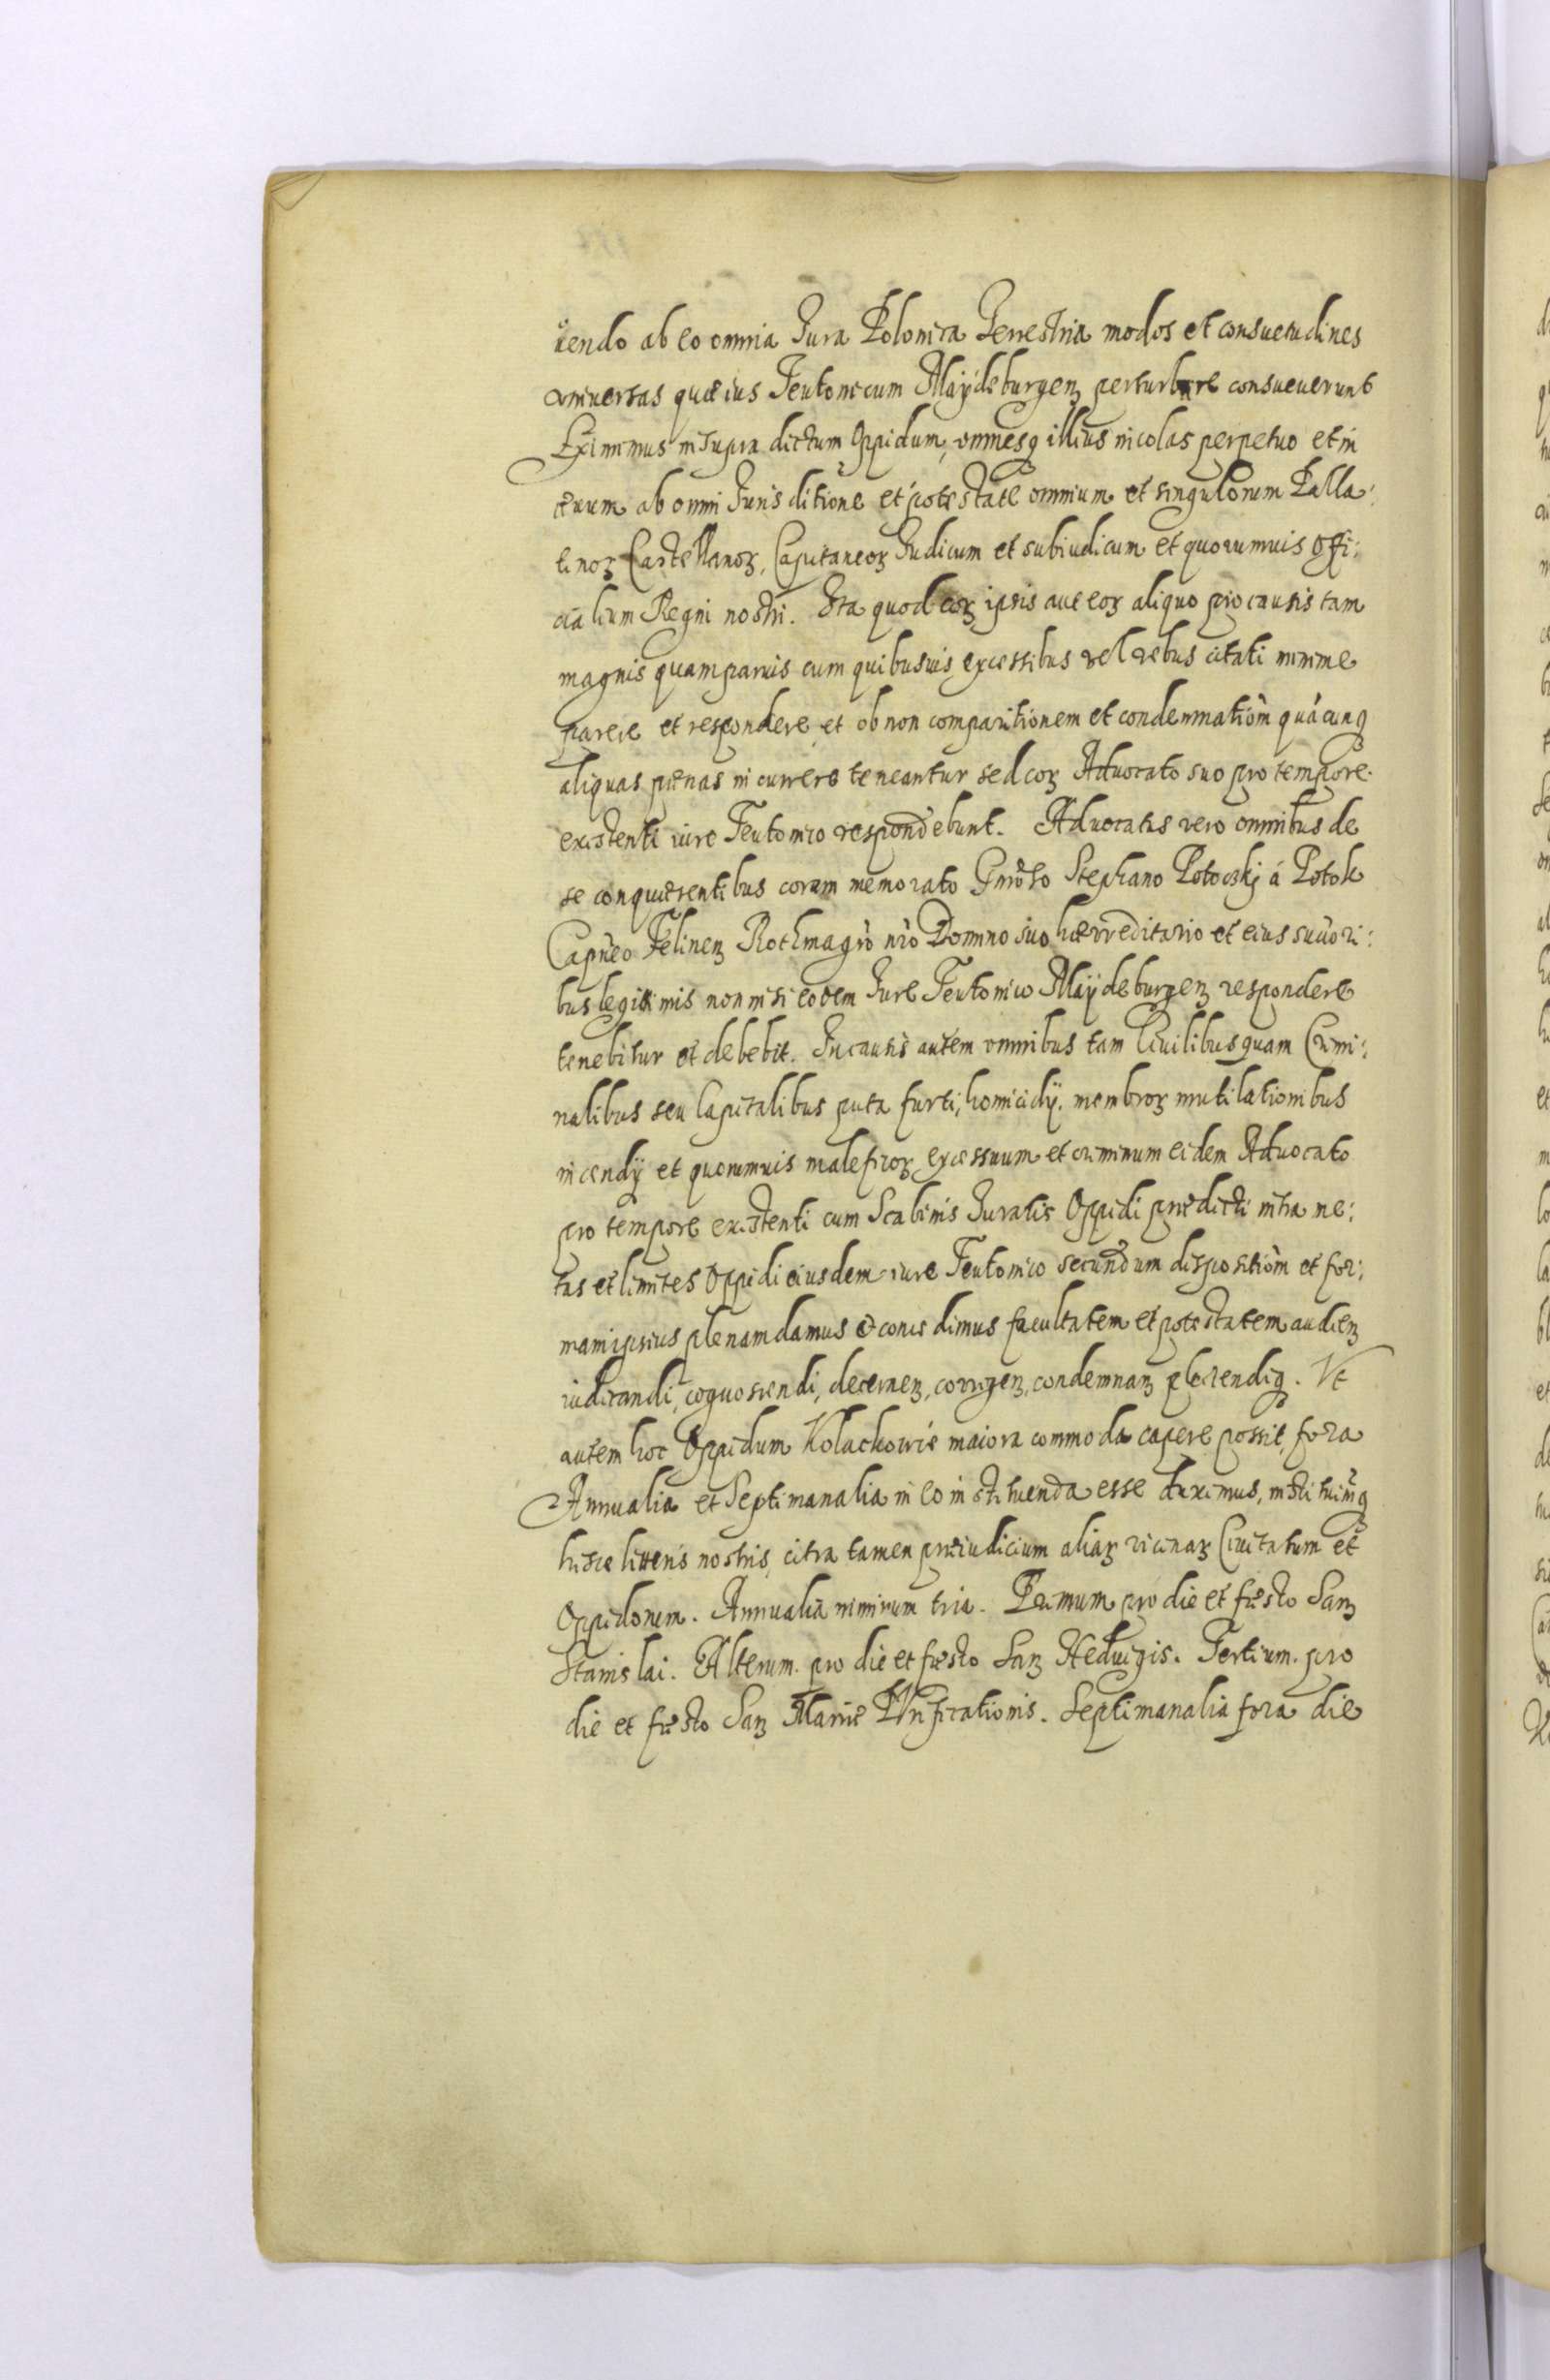 uendo ab eo omnia Jura Polonica Terrestria modos et consuetudines
vniuersas quæ ius Teutonicum Maÿdeburgenʒ perturbare consueuerunt
Eximimus insupra dictum Oppidum, omnesqʒ illius incolas perpetuo et in
æuum ab omni Jurisditione et potestate omnium et singulorum Palla:
tinoʒ Castellanoʒ, Capitaneoʒ Judicum et subiudicum et quorumuis offi:
cialium Regni nostri. Ita quod coʒ ipsis aut eoʒ aliquo pro causis tam
magnis quam paruis cum quibusuis excessibus vel rebus citati minime
parere et respondere et ob non comparitionem et condemnatiom̀ quácunqʒ
aliquas pænas incurrere teneantur sed coʒ Aduocato suo pro tempore
existenti iure Teutonico respondebunt. Aduocatus vero omnibus de
se conquærentibus coram memorato Gnr̃oso Stephano Potoczkj á Potok
Capneo Felinenʒ Rothmagr̀o nr̀o Domino suo hærreditario et eius suc̀ori:
bus legitimis non nisi eodem Jure Teutonico Maÿdeburgenʒ respondere
tenebitur et debebit. In causis autem omnibus tam Ciuilibus quam Crimi:
nalibus seu Capitalibus puta furti, homicidÿ, membroʒ mutilationibus
incendÿ et quorumuis maleficoʒ excessuum et criminum eidem Aduocato
pro tempore existenti cum Scabinis Juratis Oppidi prædicti intra me:
tas et limites Oppidi eiusdem iure Teutonico secundum dispositiom̀ et for:
mam ipsius plenam damus & concedimus facultatem et potestatem audienʒ
iudicandi, coguoscendi, decernenʒ, corrigenʒ, condemnanʒ plectendiqʒ. Vt
autem hoc Oppidum Kolackowie maiora commoda capere possit, fora
Annualia et Septimanalia in eo instituenda esse duximus, instituim̃qʒ
hisce litteris nostris, citra tamen præiudicium aliaʒ vicinaʒ Ciuitatum et
Oppidorum. Annualia nimirum tria. Primum pro die et fæsto Sanʒ
Stanislai. Alterum pro die et fæsto Sanʒ Heduigis. Tertium pro
die et fæsto Sanʒ Mariæ Purificationis. Septimanalia fora die